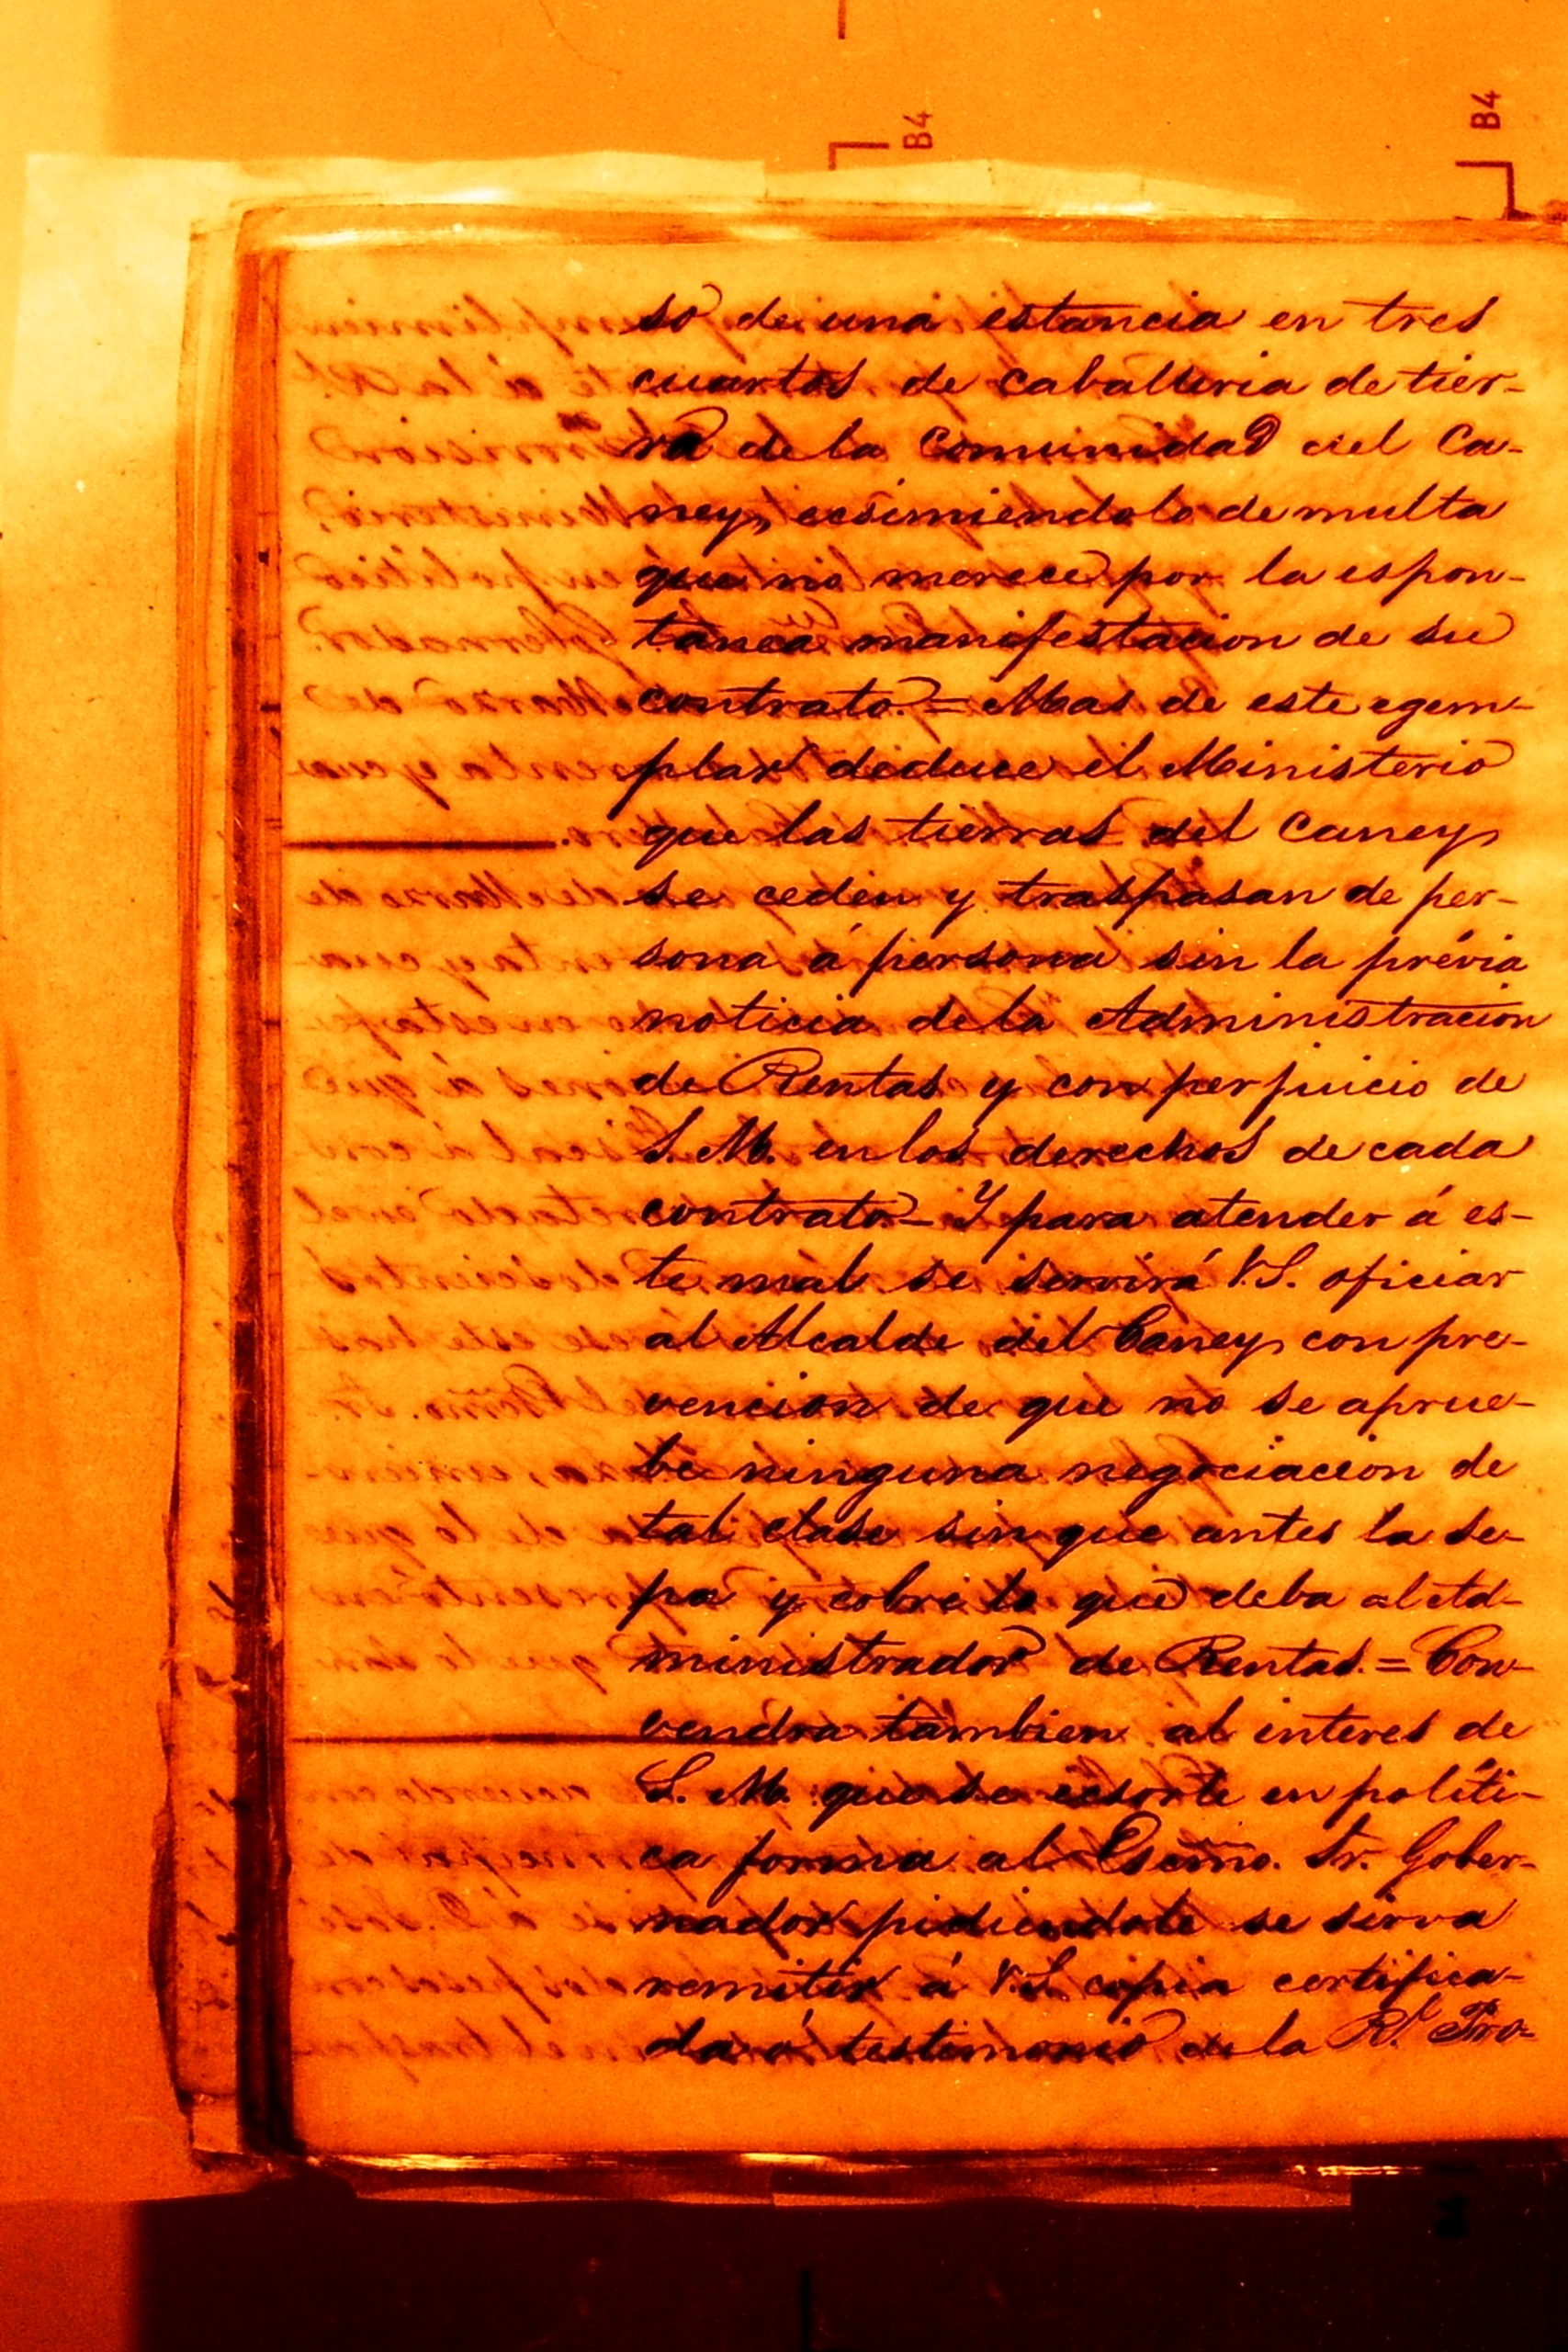 B4
B4
so de una estancia en tres
cuartos de caballeria de tier-
ra de la Comunidad del Ca-
ney, ecsimiéndolo de multa
que no merece por la espon-
tanea manifestacion de su
contrato.= Mas de este egem-
plar deduce el Ministerio
que las tierras del Caney
se ceden y traspasan de per-
sona á persona sin la prévia
noticia de la Administracion
de Rentas y con perjuicio de
S. M. en los derechos de cada
contrato_ Y para atender á es-
te mal se servirá V.S. oficiar
al Alcalde del Caney con pre-
vencion de que no se aprue-
be ninguna negociacion de
tal clase sin que antes la se-
pa y cobre lo que deba al Ad-
ministrador de Rentas.= Con-
vendra tambien al interes de
S. M. que se ecsorte en políti-
ca forma al Escmo. Sr. Gober-
nador pidiendole se sirva
remitir á V.S. copia certifica-
da ó testimonio de la Rl. Pro-